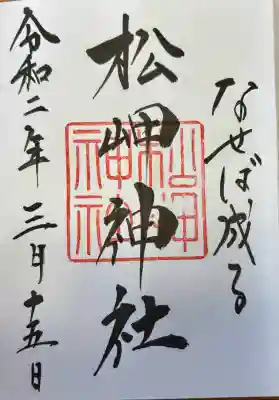 なせば成る
松岬神社
令和二年三月十五日